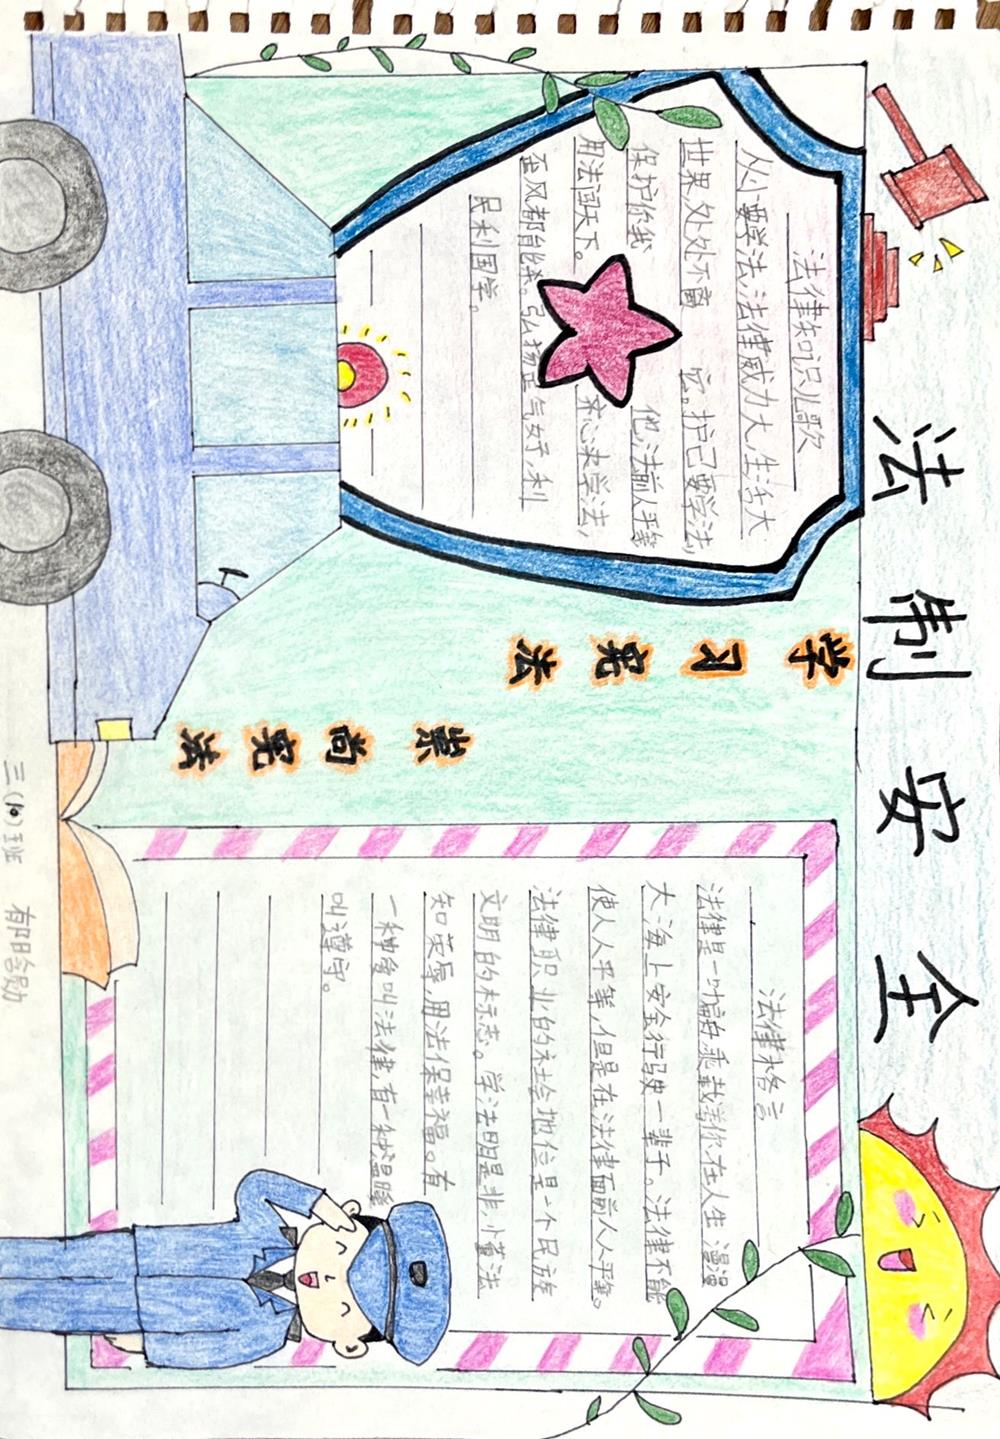 法制安全
法律知识儿歌
人小要学法,法律威力大,生活大
世界,处处不离 它。护已要学法,
保护你我 他,法前人平等
用法闯天下。 齐心来学法,
歪风都能杀。弘扬正气好,利
民利国学。
学习宪法
崇尚宪法
法律格言
法律是一叶扁舟乘载着你在人生漫漫
大海上安全行驶一辈子。法律不能
使人人平等,但是在法律面前人人平等。
法律职业的社会地位是一个民族
文明的标志。学法明是非,小董法
知荣辱,用法保幸福。有
一种爱叫法律有一种温暖
叫遵守。
三(10)班 郁晗勋